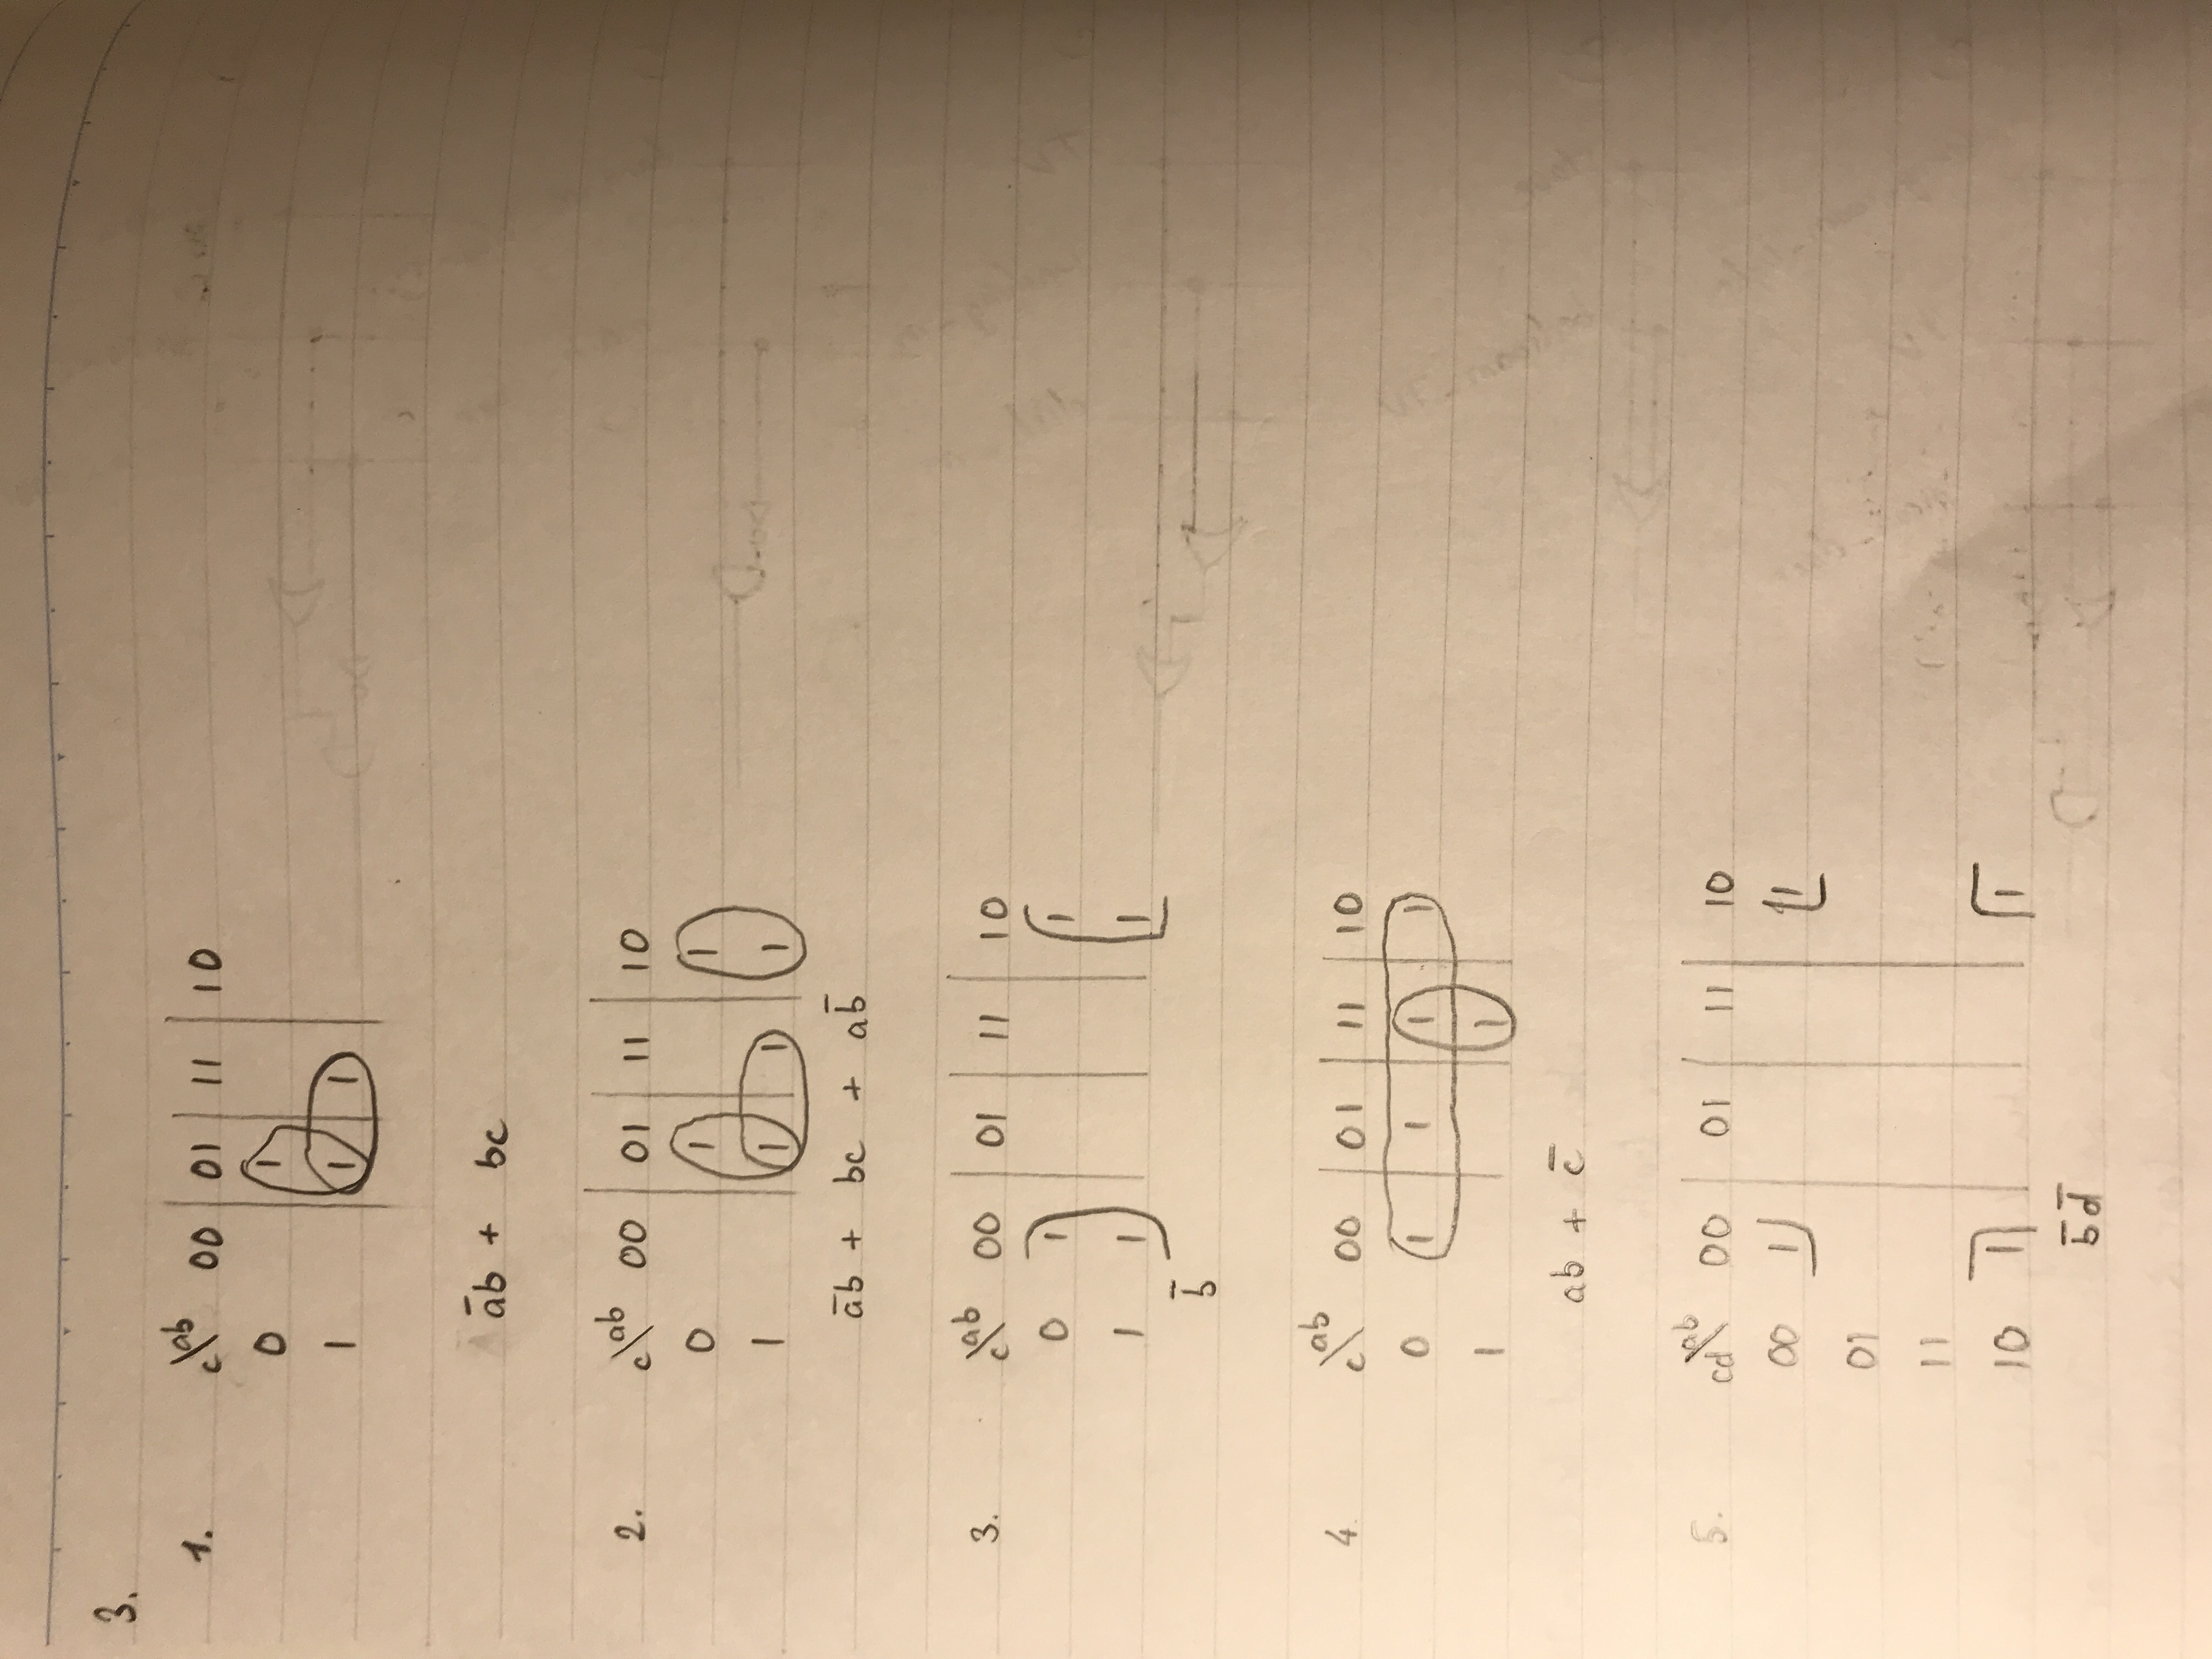 3.
1. c\ab 00 01 11 10
0 1
1 1 1
a̅b + bc
2. c\ab 00 01 11 10
0 1 1
1 1 1 1
a̅b + bc + ab̅
3. c\ab 00 01 11 10
0 1 1
1 1 1
b̅
4. c\ab 00 01 11 10
0 1 1 1 1
1 1
ab + c̅
5. cd\ab 00 01 11 10
00 1 1
01
11
10 1 1
b̅d̅